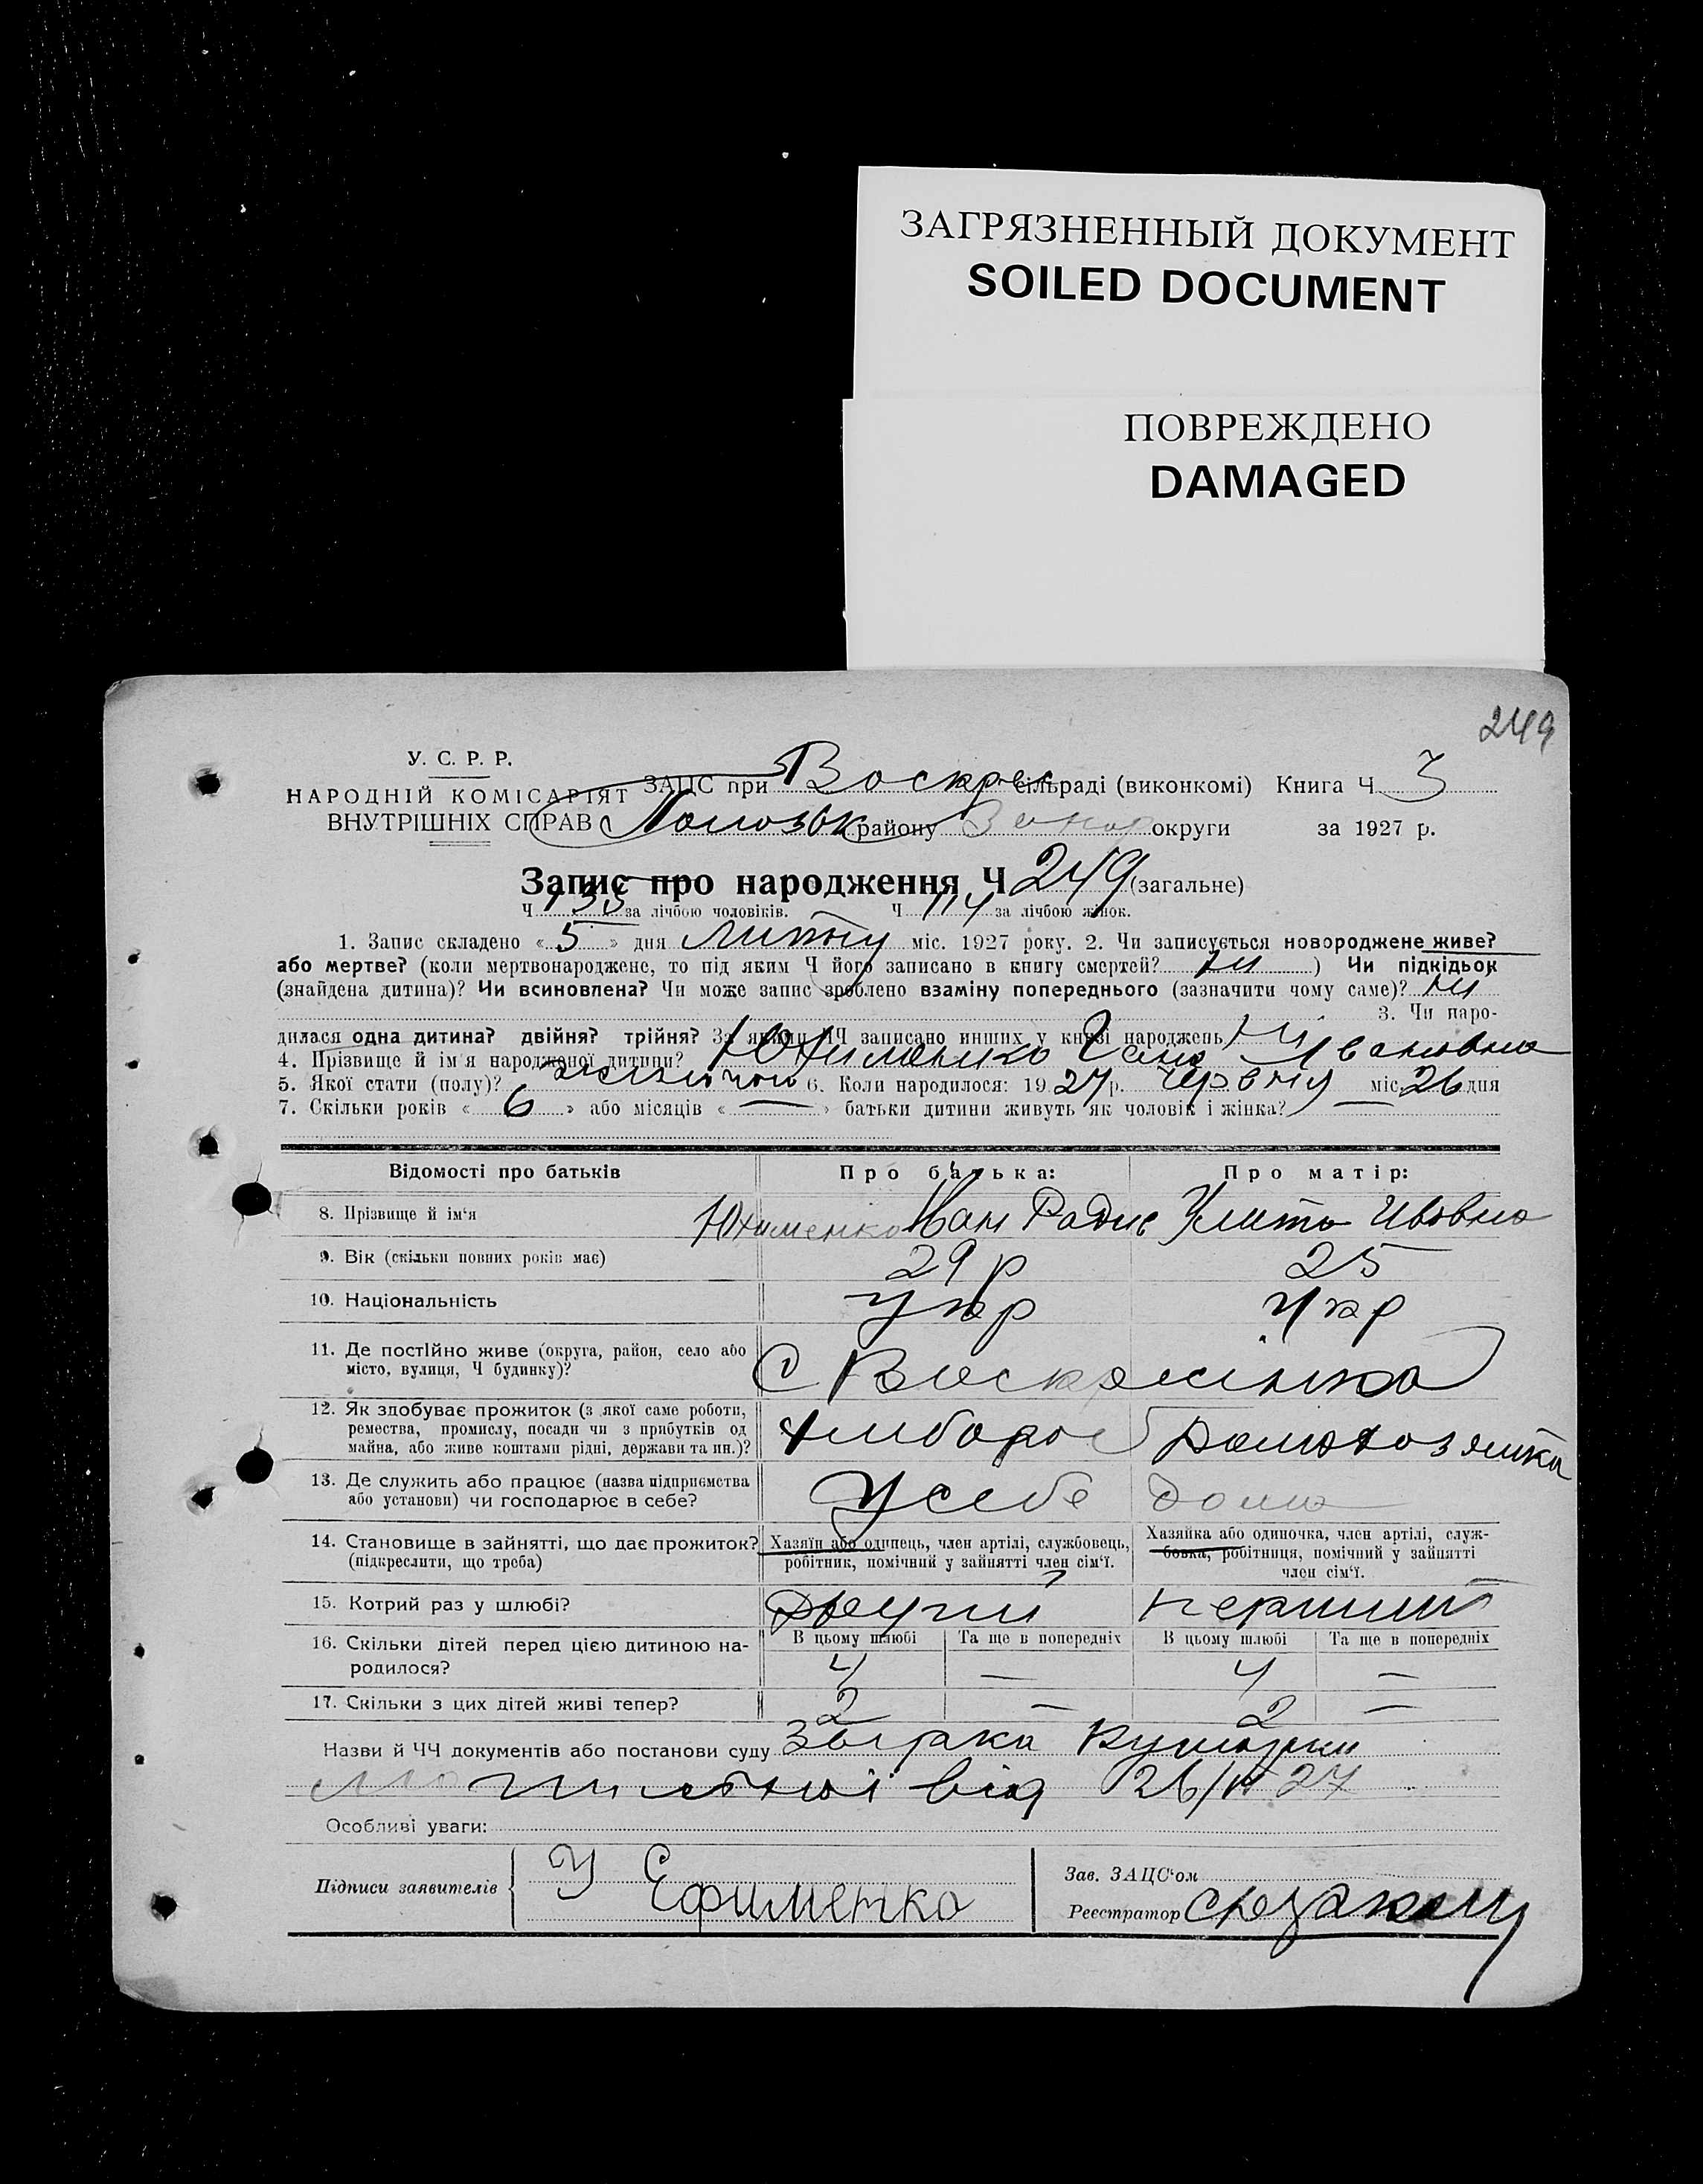 ЗАГРЯЗНЕННЫЙ ДОКУМЕНТ
SOILED DOCUMENT
ПОВРЕЖДЕНО
DAMAGED
249
У. С. Р. Р.
НАРОДНІЙ КОМІСАРІЯТ
ВНУТРІШНІХ СПРАВ
ЗАЦС при Воскрес сільраді (виконкомі) Книга Ч 3
району Запор округи за 1927 р.
Запис про народження Ч 249 (загальне)
Ч 135 за лічбою чоловіків. Ч 114 за лічбою жінок.
1. Запис складено « 5 » дня міс. 1927 року. 2. Чи записується новороджене живе?
або мертве? (коли мертвонароджене, то під яким Ч його записано в книгу смертей? ні ) Чи підкідьок
(знайдена дитина)? Чи всиновлена? Чи може запис зроблено взаміну попереднього (зазначити чому саме)? ні
3. Чи наро-
дилася одна дитина? двійня? трійня? За якими ЧЧ записано инших у книзі народжень Ні
4. Прізвище й ім'я народженої дитини? Юхименко Гана Івановна
5. Якої стати (полу)? жіночои 6. Коли народилося: 1927 р. червня міс. 26 дня
7. Скільки років « 6 » або місяців « — » батьки дитини живуть як чоловік і жінка? —
Відомості про батьків
Про батька:
Про матір:
8. Прізвище й ім'я Юхименко Иван Радив Улита Ивовна
9. Вік (скільки повних років має) 29 р 25
10. Національність укр укр
11. Де постійно живе (округа, район, село або
місто, вулиця, Ч будинку)?
С Воскресенка
12. Як здобуває прожиток (з якої саме роботи,
ремества, промислу, посади чи з прибутків од
майна, або живе коштами рідні, держави та ин.)?
хлібороб домохозяйка
13. Де служить або працює (назва підприємства
або установи) чи господарює в себе?
У себе дома
14. Становище в зайнятті, що дає прожиток?
(підкреслити, що треба)
Хазяїн або одинець, член артілі, службовець,
робітник, помічний у зайнятті член сім'ї.
Хазяйка або одиночка, член артілі, служ-
бовка, робітниця, помічний у зайнятті
член сім'ї.
15. Котрий раз у шлюбі? другий перший
16. Скільки дітей перед цією дитиною на-
родилося?
В цьому шлюбі Та ще в попередніх В цьому шлюбі Та ще в попередніх
4 — 4 —
17. Скільки з цих дітей живі тепер? 2 — 2 —
Назви й ЧЧ документів або постанови суду
від 26/VI 27
Особливі уваги:
Підписи заявителів
У Ефименко
Зав. ЗАЦС'ом
Реєстратор